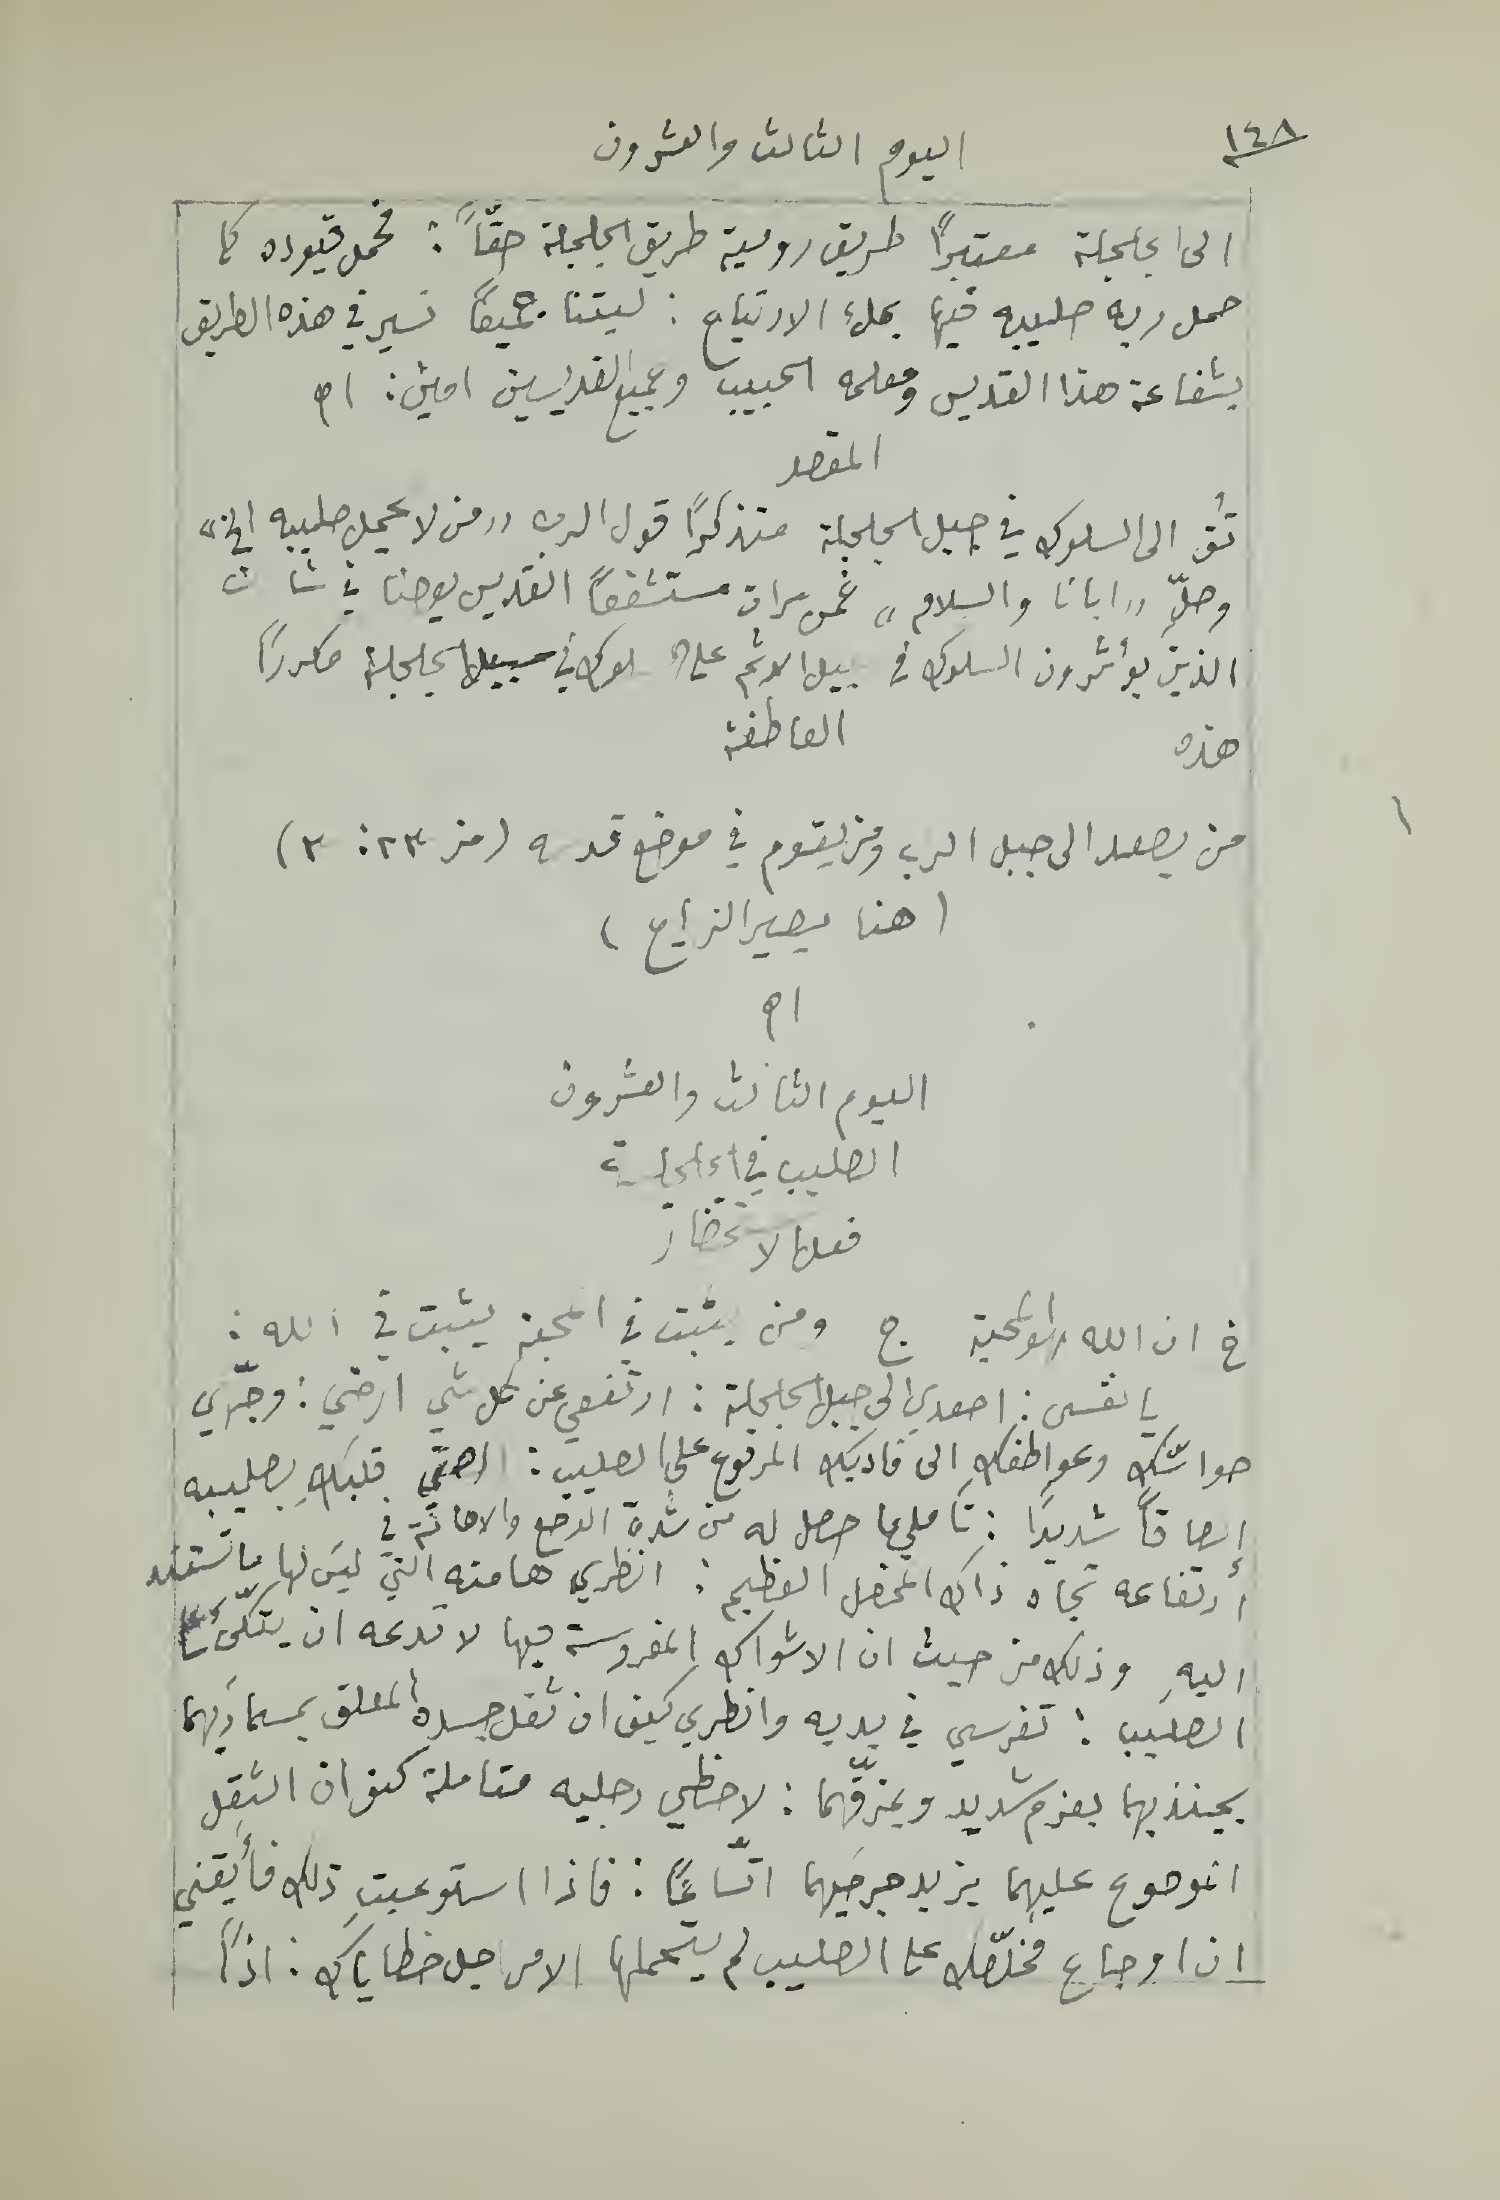 ١٤٨
اليوم الثالث والعشرون
الى الجلجلة معتبرًا طريق رومية طريق الجلجلة حقًّا : فحمل قيوده كما
حمل ربه صليبه فيها بملء الارتياح : ليتنا جميعًا نسير في هذه الطريق
بشفاعة هذا القديس ومعلمه الحبيب وجميع القديسين امين : اھ
المقصد
تُق الى السلوك في جبل الجلجلة متذكرًا قول الرب ,,ومن لا يحمل صليبه الخ,,
وصلِّ ,,ابانا والسلام,, خمس مرات مستشفعًا القديس يوحنا في شان
الذين يؤثرون السلوك في سبيل الاثم على السلوك في سبيل الجلجلة مكررًا
هذه العاطفة
من يصعد الى جبل الرب ومن يقوم في موضع قدسه (مز ٢٣: ٣)
(هنا يصير الزياح)
اھ
اليوم الثالث والعشرون
الصليب في الجلجلة
فعل الاستحضار
خ ان الله هو المحبة ج ومن يثبت في المحبة يثبت في الله :
يا نفسي : اصعدي الى جبل الجلجلة : ارتفعي عن كل شي ارضي : وجّهي
حواسّكِ وعواطفكِ الى فاديك المرفوع على الصليب : الصقي قلبكِ بصليبه
إلصاقًا شديدًا : تأملي بما حصل له من شدة الوجع والاهانة في
أرتفاعه تجاه ذاك المحفل العظيم : انظري هامته التي ليس لها ما تستند
اليهِ وذلك من حيث ان الاشواك المغروسة فيها لا تدعه ان يتكّئ على
الصليب : تفرسي في يديه وانظري كيف ان ثقل جسده المعلق بمسمارَيهما
يجذبهما بعزم شديد ويمزّقهما : لاحظي رجليه متاملة كيف ان الثِقِل
الموضوع عليهما يزيد جرحَيهما اتّساعًا : فاذا استوعبتِ ذلك فأَيقني
ان اوجاع مخلّصك على الصليب لم يتحملها الا من اجل خطاياكِ : اذًا